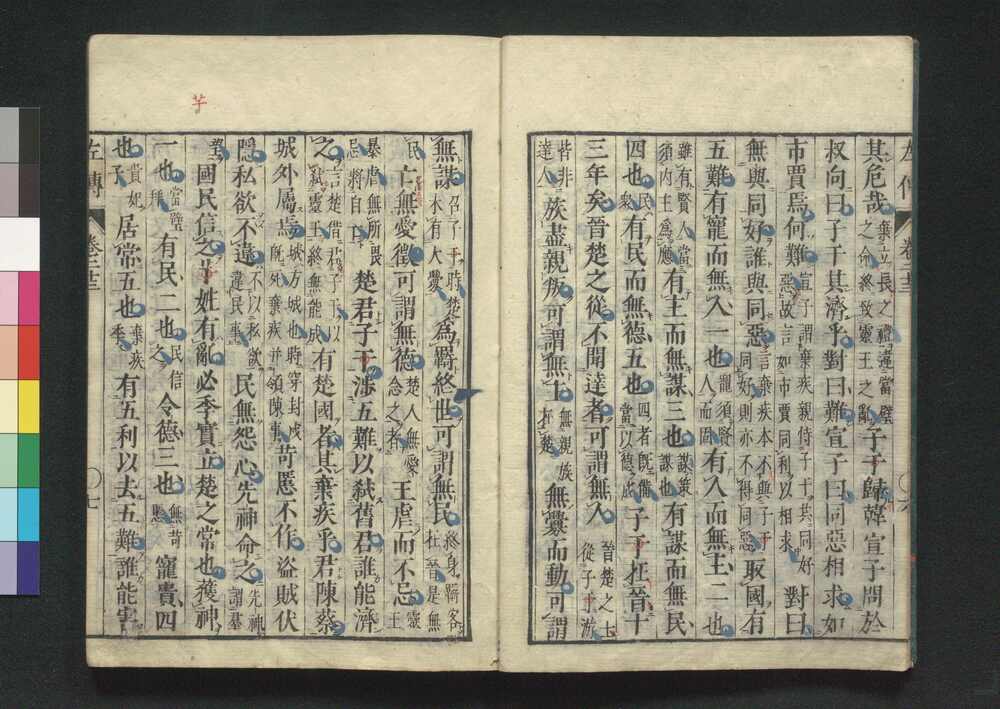 左傳
卷二十三
其危哉棄立長之禮違當璧之命終致靈王之亂子干歸韓宣子問於
叔向曰子干其濟乎對曰難宣子曰同惡相求如
市賈焉何難宣子謂棄疾親恃子干共同好惡故言如市賈同利以相求對曰
無與同好誰與同惡言棄疾本不與子干同好則亦不得同惡取國有
五難有寵而無人一也寵須賢人而固有人而無主二也
雖有賢人當須內主為應有主而無謀三也謀策謀也有謀而無民
四也民衆有民而無德五也四者既備當以德成子干在晉十
三年矣晉楚之從不聞達者可謂無人晉楚之士從子干游
皆非達人族盡親叛可謂無主無親族在楚無釁而動可謂
〇六
芊
無謀召子干時楚未有大釁為羈終世可謂無民終身羈客在晉是無
民亡無愛徵可謂無德楚人無愛念之者王虐而不忌靈王
暴虐無所畏忌將自亡楚君子干涉五難以弒舊君誰能濟
之言楚借君子干以弒靈王終無能成有楚國者其棄疾乎君陳蔡
城外屬焉城方城也時穿封戌既死棄疾并領陳事苛慝不作盜賊伏
隱私欲不違不以私欲違民事民無怨心先神命之先神謂羣
望國民信之芊姓有亂必季實立楚之常也獲神
一也當璧拜有民二也民信之令德三也無苛慝寵貴四
也貴妃子居常五也棄疾季有五利以去五難誰能害
左傳
卷二十三
〇七